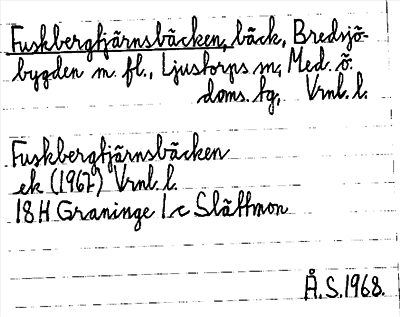 Fuskbergtjärnsbäcken, bäck, Bredsjö-
bygden m. fl., Ljustorps sn, Med. ö.
doms. tg, Vrnl. l.
Fuskbergtjärnsbäcken
ek (1967) Vrnl. l.
18H Graninge 1c Slättmon
Å.S.1968.